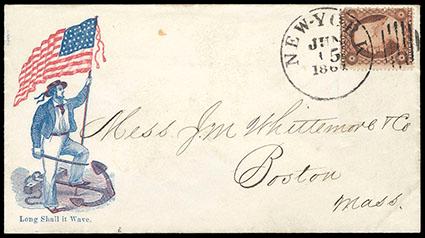 NEW-YORK
JUN
15
186
Mess. J.M. Whittemore & Co
Boston
Mass.
Long Shall it Wave.